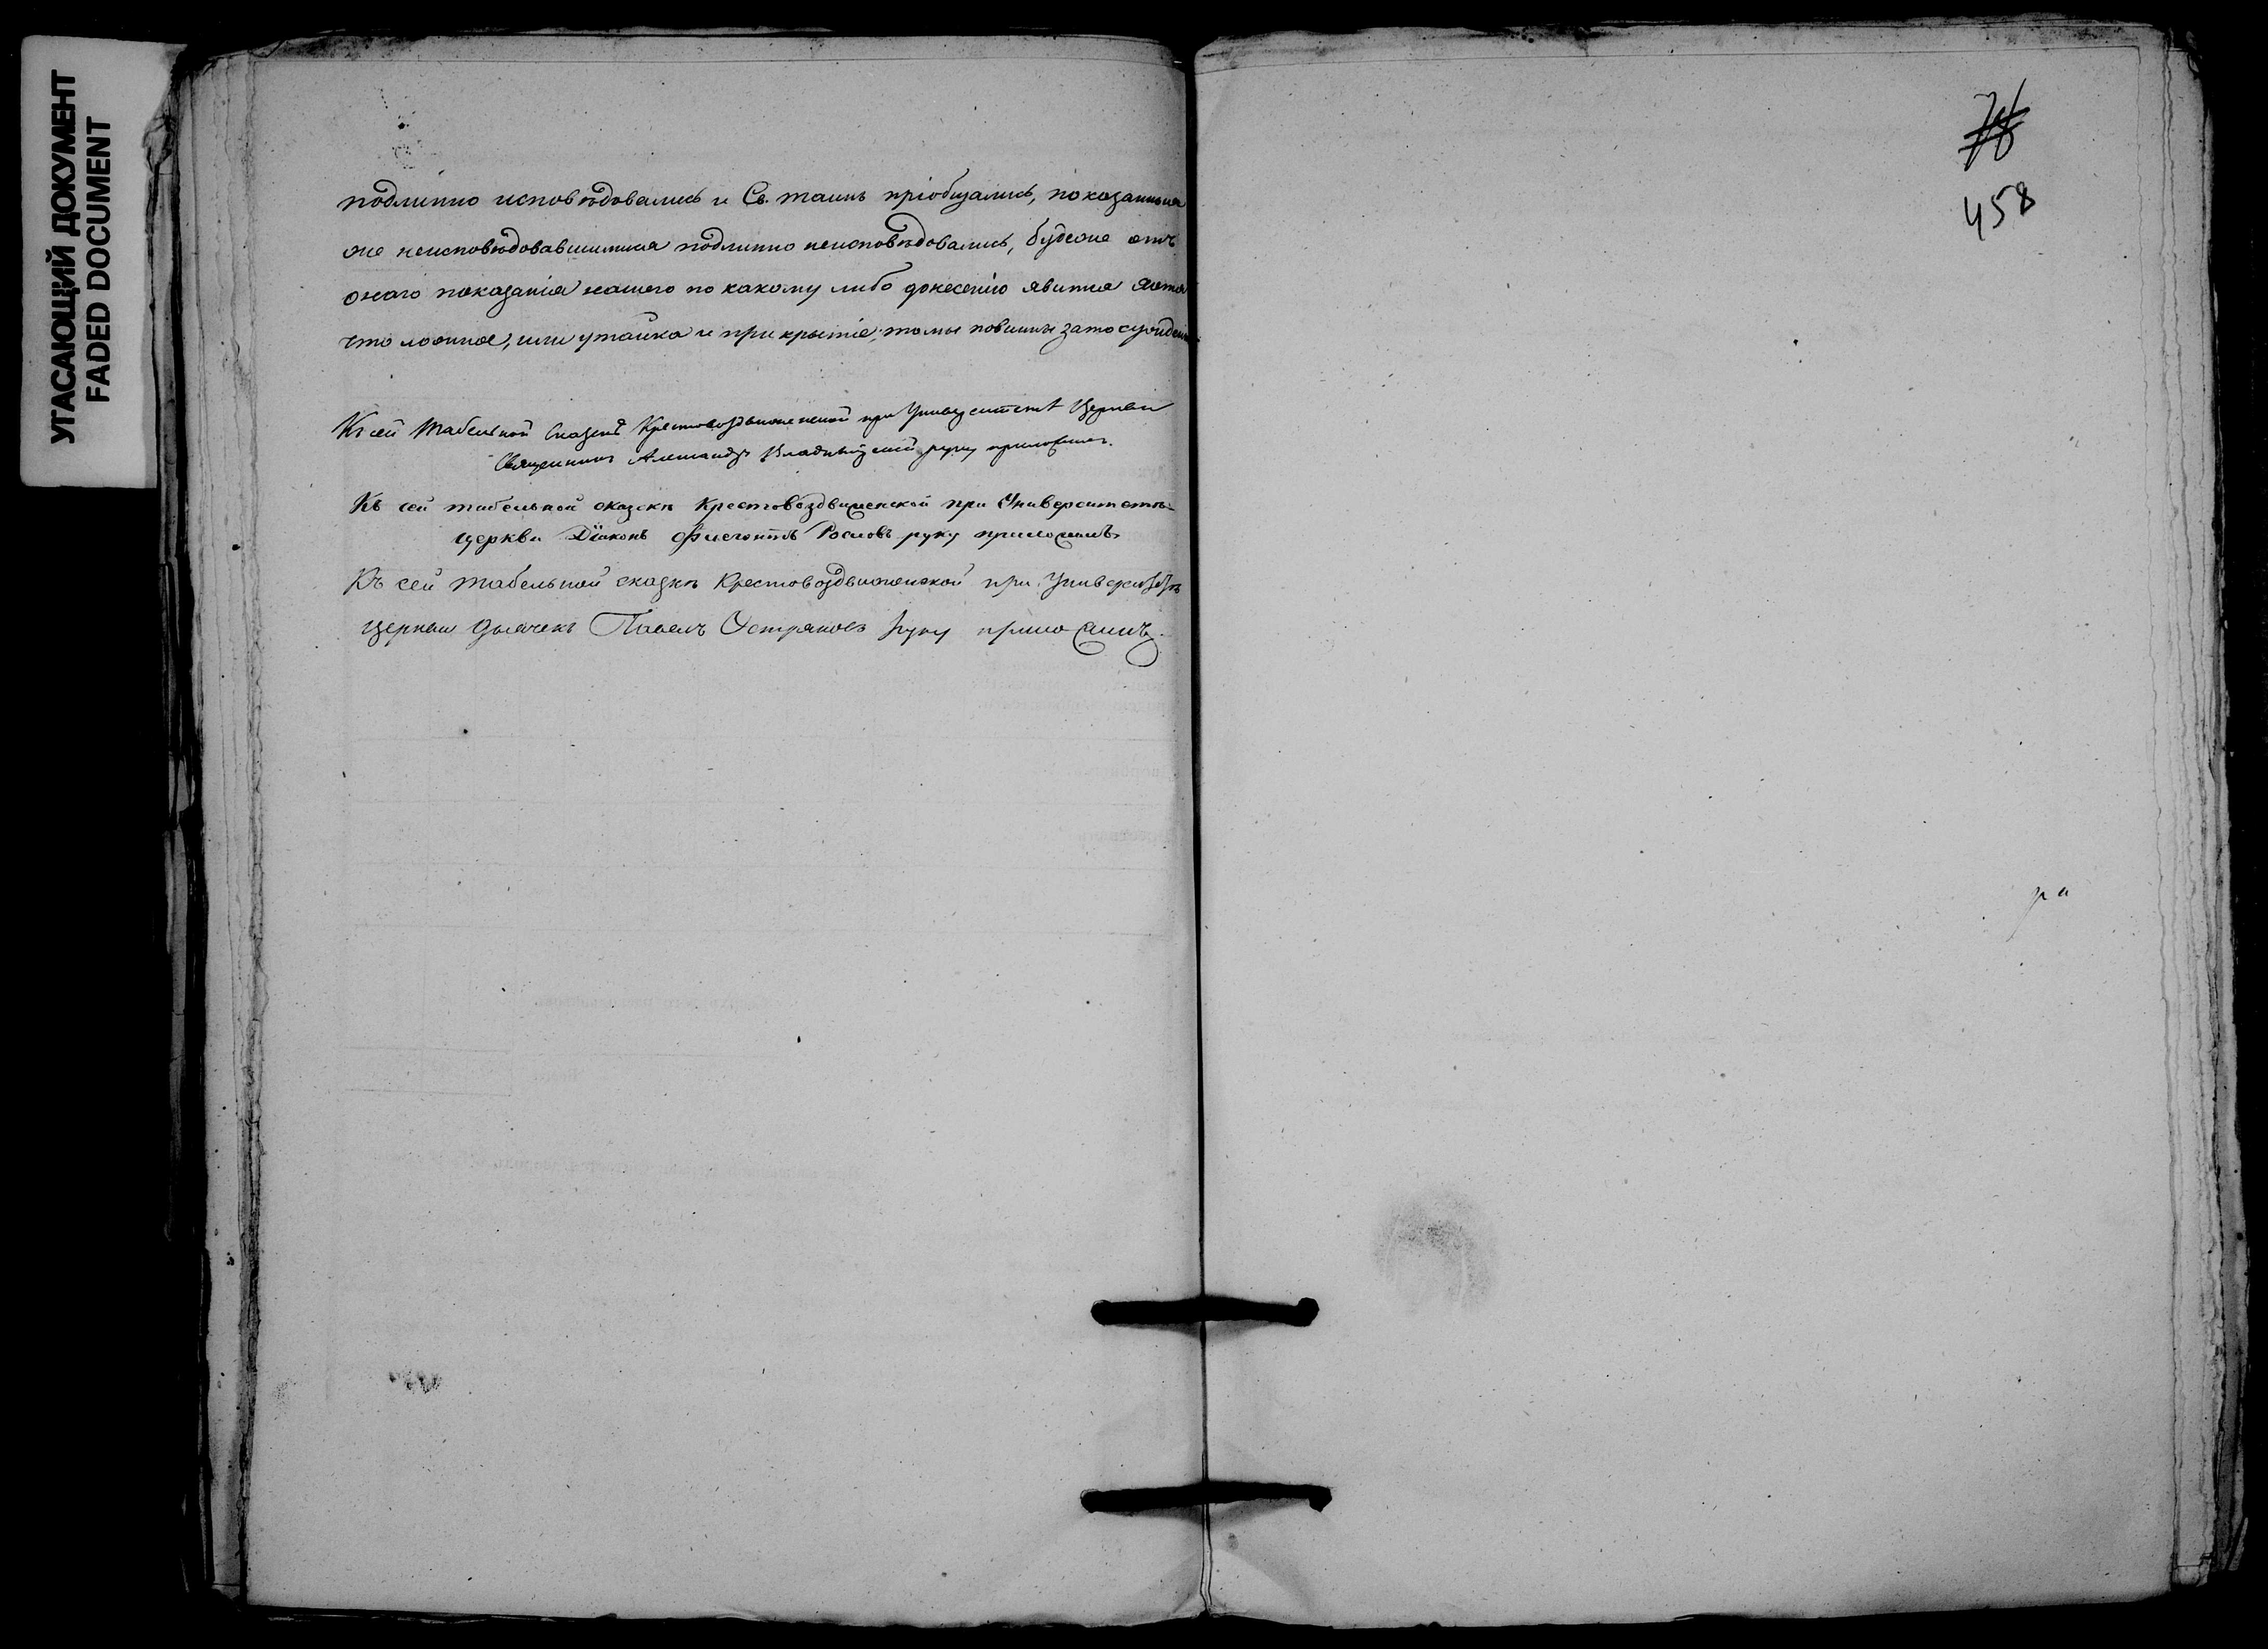 УГАСАЮЩИЙ ДОКУМЕНТ
FADED DOCUMENT
подлинно исповѣдовались и Св. таинъ пріобщались, показанныя
же неисповѣдовавшимися подлинно неисповѣдовались, будеже отъ
онаго показанія нашего по какому либо донесенію явится хотя
что ложное, или утайка и прикрытіе; то мы повинны за то сужденію
Къ сей табельной сказкѣ Крестовоздвиженской при Университетѣ Церкви
Священникъ Александръ руку приложилъ.
Къ сей табельной сказкѣ Крестовоздвиженской при Университетѣ
церкви Діаконъ руку приложилъ
Къ сей табельной сказкѣ Крестовоздвиженской при
церкви дьячекъ Павелъ Остряковъ руку приложилъ.
458
ра